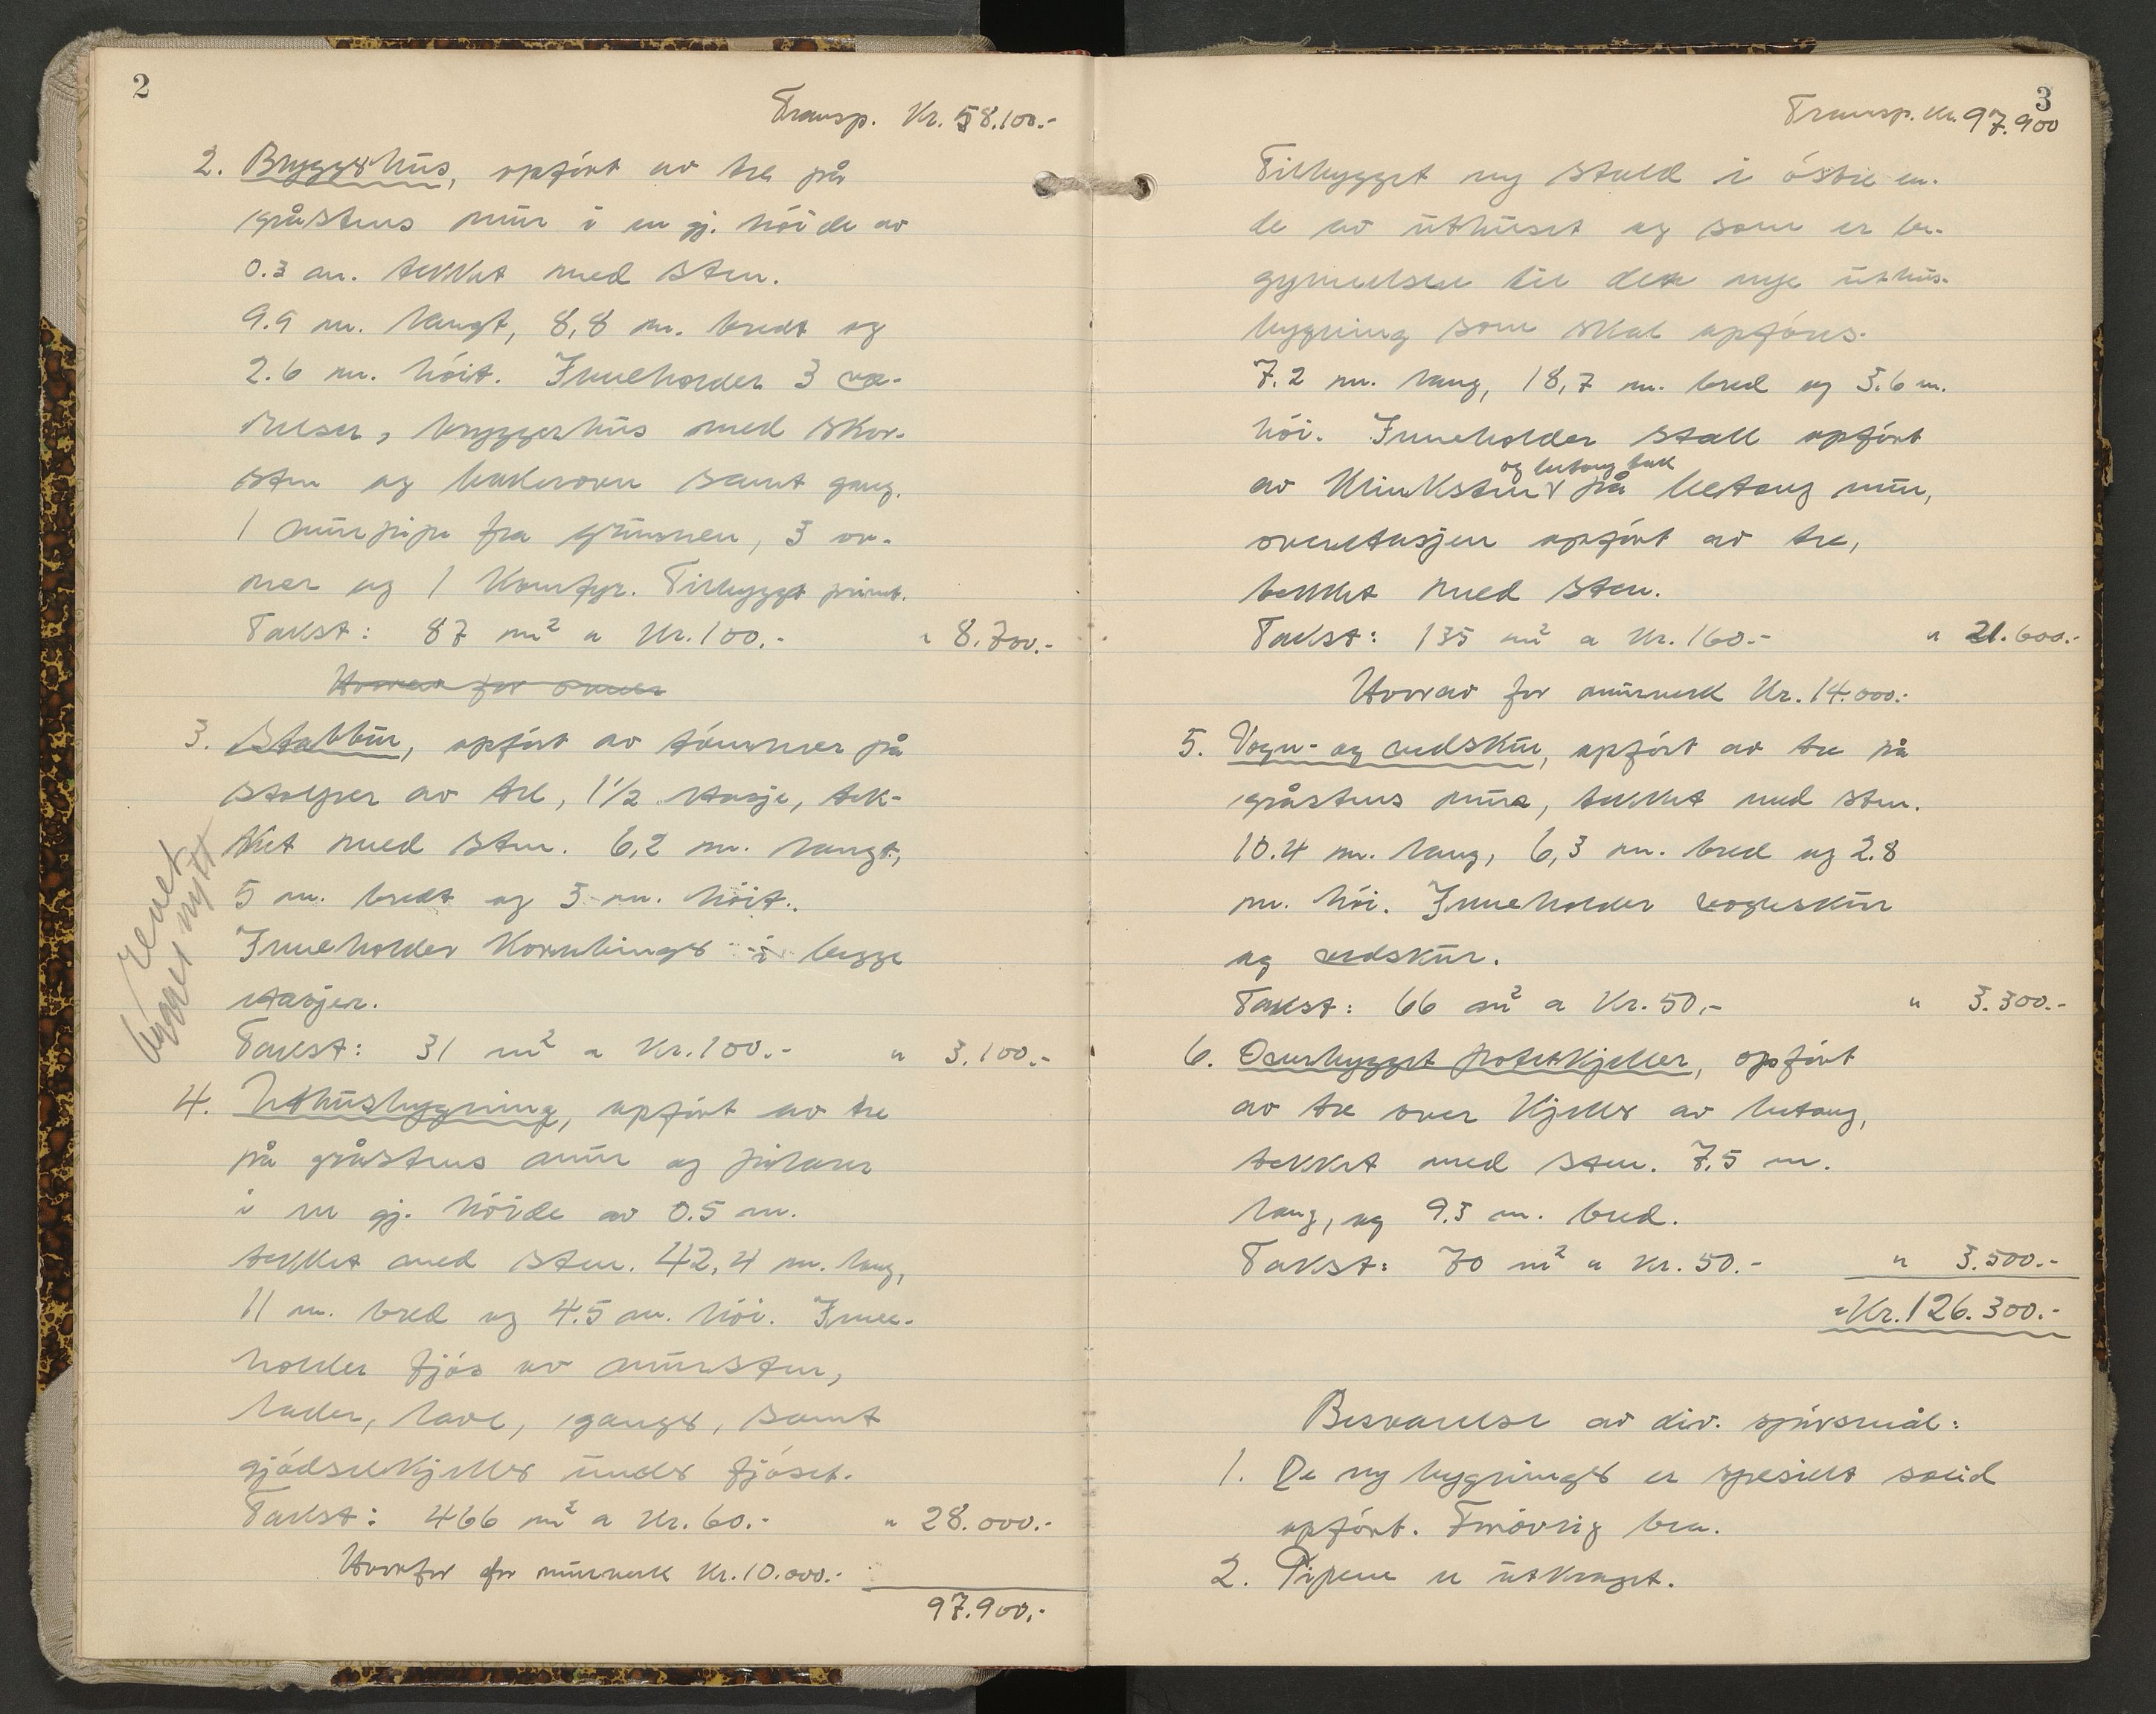 2
Transp. Kr. 58.100.-
2. Bryggerhus, opført av tre på
gråstens mur i en gj. høide av
0.3 m. tekket med sten.
9.9 m. langt, 8,8 m. bredt og
2.6 m. høit. Inneholder 3 væ-
relser, bryggerhus med skor-
sten og bakerovn samt gang.
1 murpipe fra grunnen, 3 ov-
ner og 1 komfyr. Tilbygget privet.
Takst: 87 m² a Kr. 100.- " 8.700.-
Hvorav for ovner
3. Stabbur, opført av tømmer på
stolper av tre, 1 1/2 etasje, tek-
ket med sten. 6,2 m. langt,
5 m. bredt og 3 m. høit.
Inneholder kornbinger i begge
etasjer.
Takst: 31 m² a Kr. 100.- " 3.100.-
revet
bygget nytt
4. Uthusbygning, opført av tre
på gråstens mur og pilarer
i en gj. høide av 0.5 m.
tekket med sten. 42,4 m. lang,
11 m. bred og 4.5 m. høi. Inne-
holder fjøs av mursten,
lader, lave, ganger, samt
gjødselkjeller under fjøset.
Takst: 466 m² a Kr. 60.- " 28.000.-
Hvorfor for murverk Kr. 10.000.-
97.900.-
3
Transp. Kr. 97.900
Tilbygget ny stald i østre en-
de av uthuset og som er be-
gynnelsen til den nye uthus-
bygning som skal opføres.
7.2 m. lang, 18,7 m. bred og 3.6 m.
høi. Inneholder stall opført
og betong tak
av klinksten v på betong mur,
overetasjen opført av tre,
tekket med sten.
Takst: 135 m² a Kr. 160.- " 21.600.-
Hvorav for murverk Kr. 14.000.-
5. Vogn- og vedskur, opført av tre på
gråstens mur, tekket med sten.
10.4 m. lang, 6,3 m. bred og 2.8
m. høi. Inneholder vogneskur
og vedskur.
Takst: 66 m² a Kr. 50,- " 3.300.-
6. Overbygget potetkjeller, opført
av tre over kjeller av betong,
tekket med sten. 7,5 m.
lang, og 9.3 m. bred.
Takst: 70 m² a Kr. 50.- " 3.500.-
= Kr. 126.300.-
Besvarelse av div. spørsmål:
1. De ny bygninger er spesielt solid
opført. Forøvrig bra.
2. Pipene er utkraget.